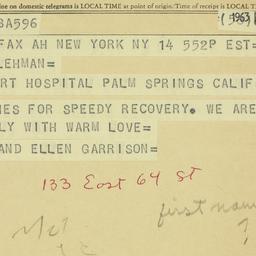 ine on domestic telegrams is LOCAL TIME at point of origin. Time of receipt is LOCAL TIME
SA596
1963
FAX AH NEW YORK NY 14 552P EST=
LEHMAN=
RT HOSPITAL PALM SPRINGS CALIF
HES FOR SPEEDY RECOVERY. WE ARE
LY WITH WARM LOVE=
AND ELLEN GARRISON=
133 East 64 St
first name
?